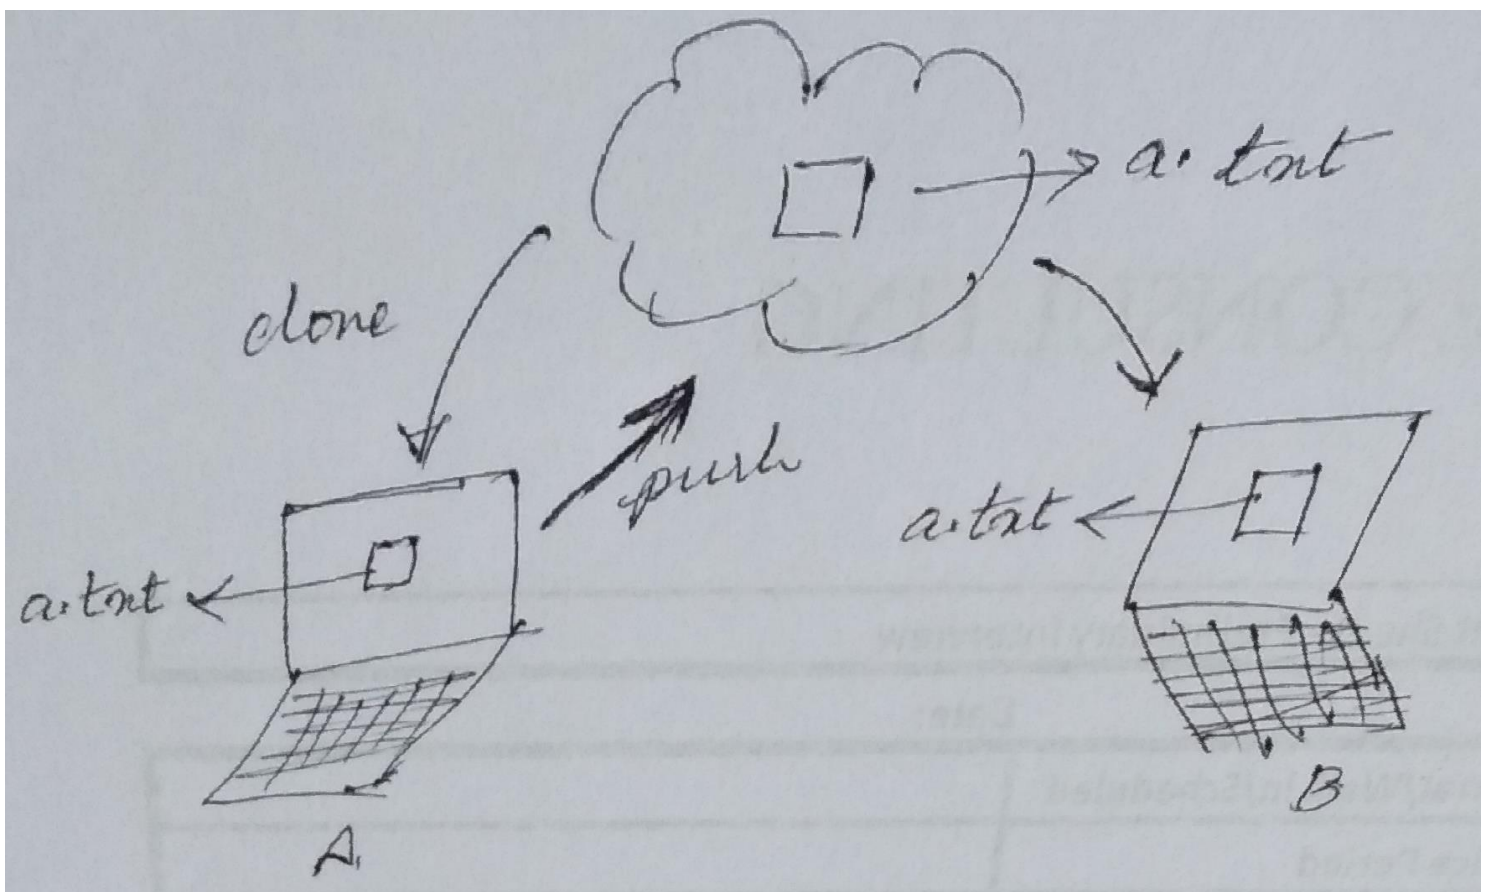 a.txt
clone
push
a.txt
a.txt
B
A